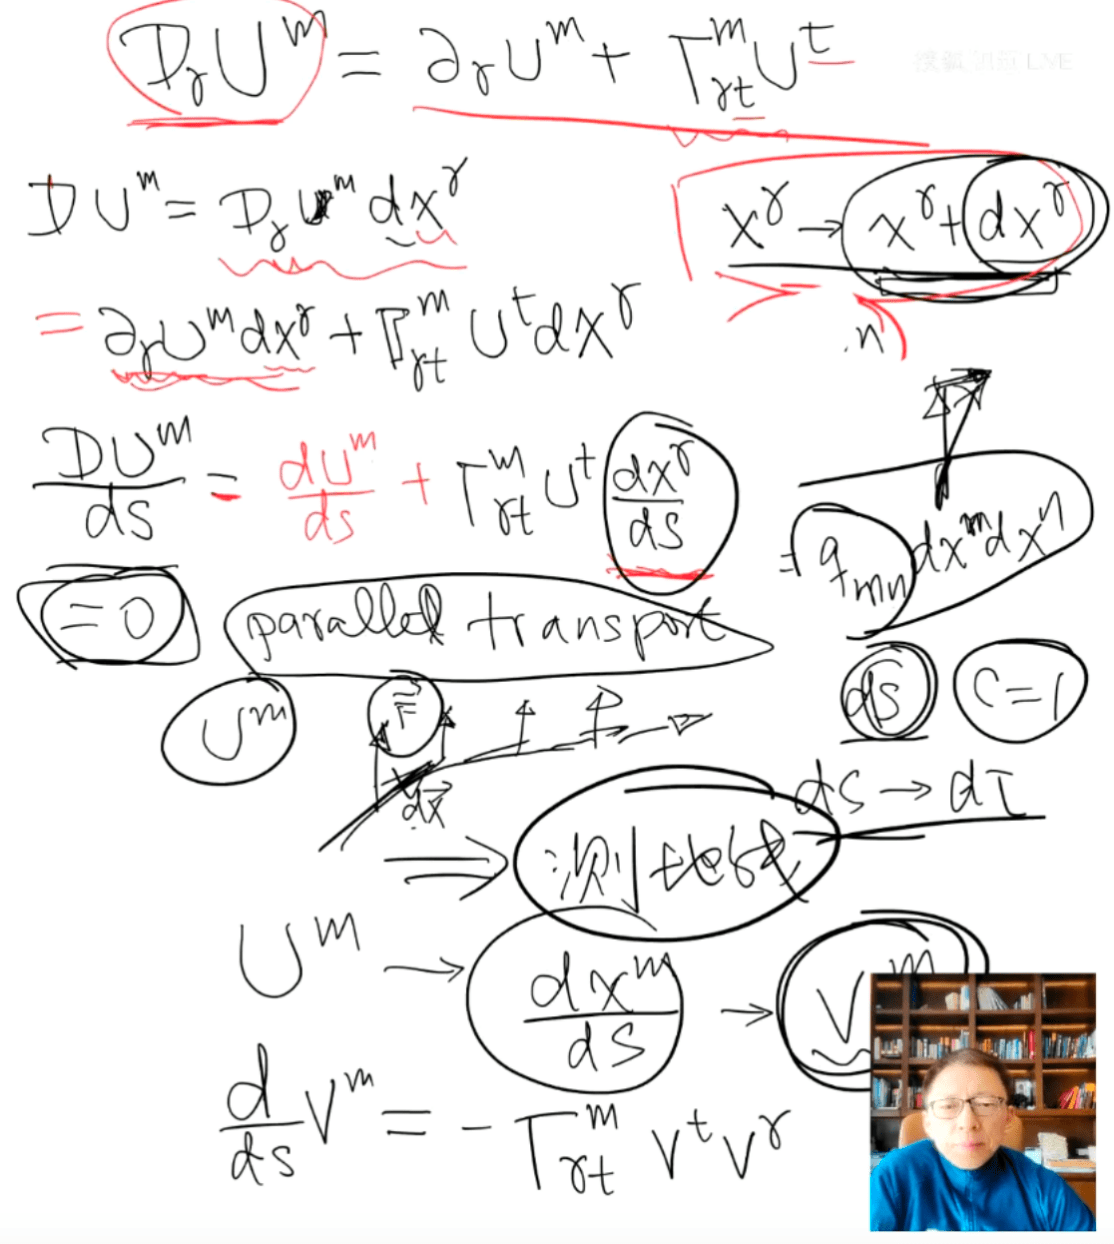 D_r U^m = ∂_r U^m + Γ^m_{rt} U^t
DU^m = D_r U^m dx^r
x^r → x^r + dx^r
= ∂_r U^m dx^r + Γ^m_{rt} U^t dx^r
n
DU^m/ds = dU^m/ds + Γ^m_{rt} U^t dx^r/ds
= g_{mn} dx^m dx^n
= 0
parallel transport
ds
C=1
U^m
dx
ds → dτ
⇒ 测地线
U^m → dx^m/ds → V^m
d/ds V^m = - Γ^m_{rt} V^t V^r